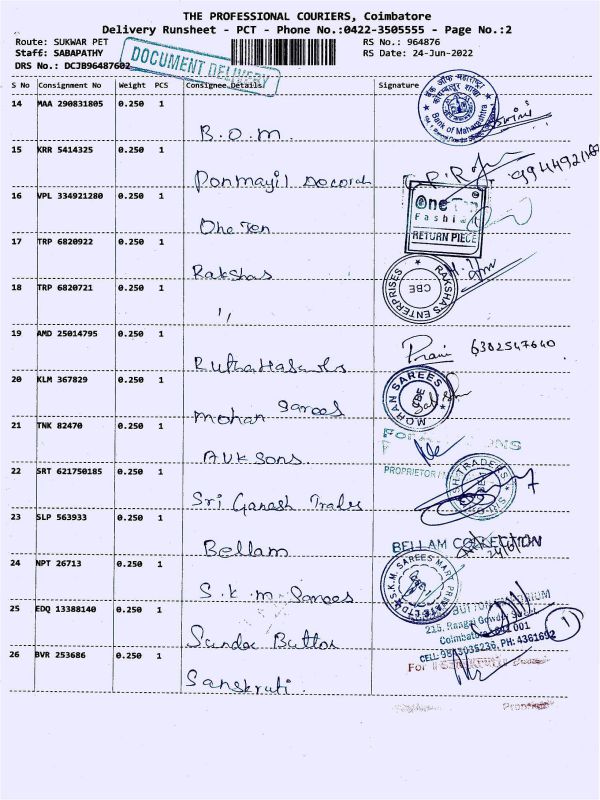 THE PROFESSIONAL COURIERS, Coimbatore
Delivery Runsheet - PCT - Phone No.:0422-3505555 - Page No.:2
Route: SUKWAR PET RS No.: 964876
Staff: SABAPATHY RS Date: 24-Jun-2022
DRS No.: DCJB96487602
DOCUMENT DELIVERY
S No Consignment No Weight PCS Consignee Details Signature
14 MAA 290831805 0.250 1
B.O.M.
Bank of Maharashtra
15 KRR 5414325 0.250 1
Ponmayil Decorah
16 VPL 334921280 0.250 1
One Ten
One Ten
Fashion
RETURN PIECE
17 TRP 6820922 0.250 1
Rakshas
RAKSHA'S ENTERPRISES
CBE
18 TRP 6820721 0.250 1
"
19 AMD 25014795 0.250 1
6382547640
20 KLM 367829 0.250 1
Mohan Sarees
MOHAN SAREES
CBE
21 TNK 82470 0.250 1
AVK Sons
PROPRIETOR
22 SRT 621750185 0.250 1
Sri Ganesh Trades
23 SLP 563933 0.250 1
Bellam
BELLAM COLLECTION
24 NPT 26713 0.250 1
S.K.M. Sarees
S.K.M. SAREES MART PRIVATE LTD
25 EDQ 13388140 0.250 1
BUTTON EMPORIUM
215, Rangai Gowder Street
Coimbatore - 641 001
CELL: 9843035236, PH: 4361692
1
26 BVR 253686 0.250 1
Sanskruti
For